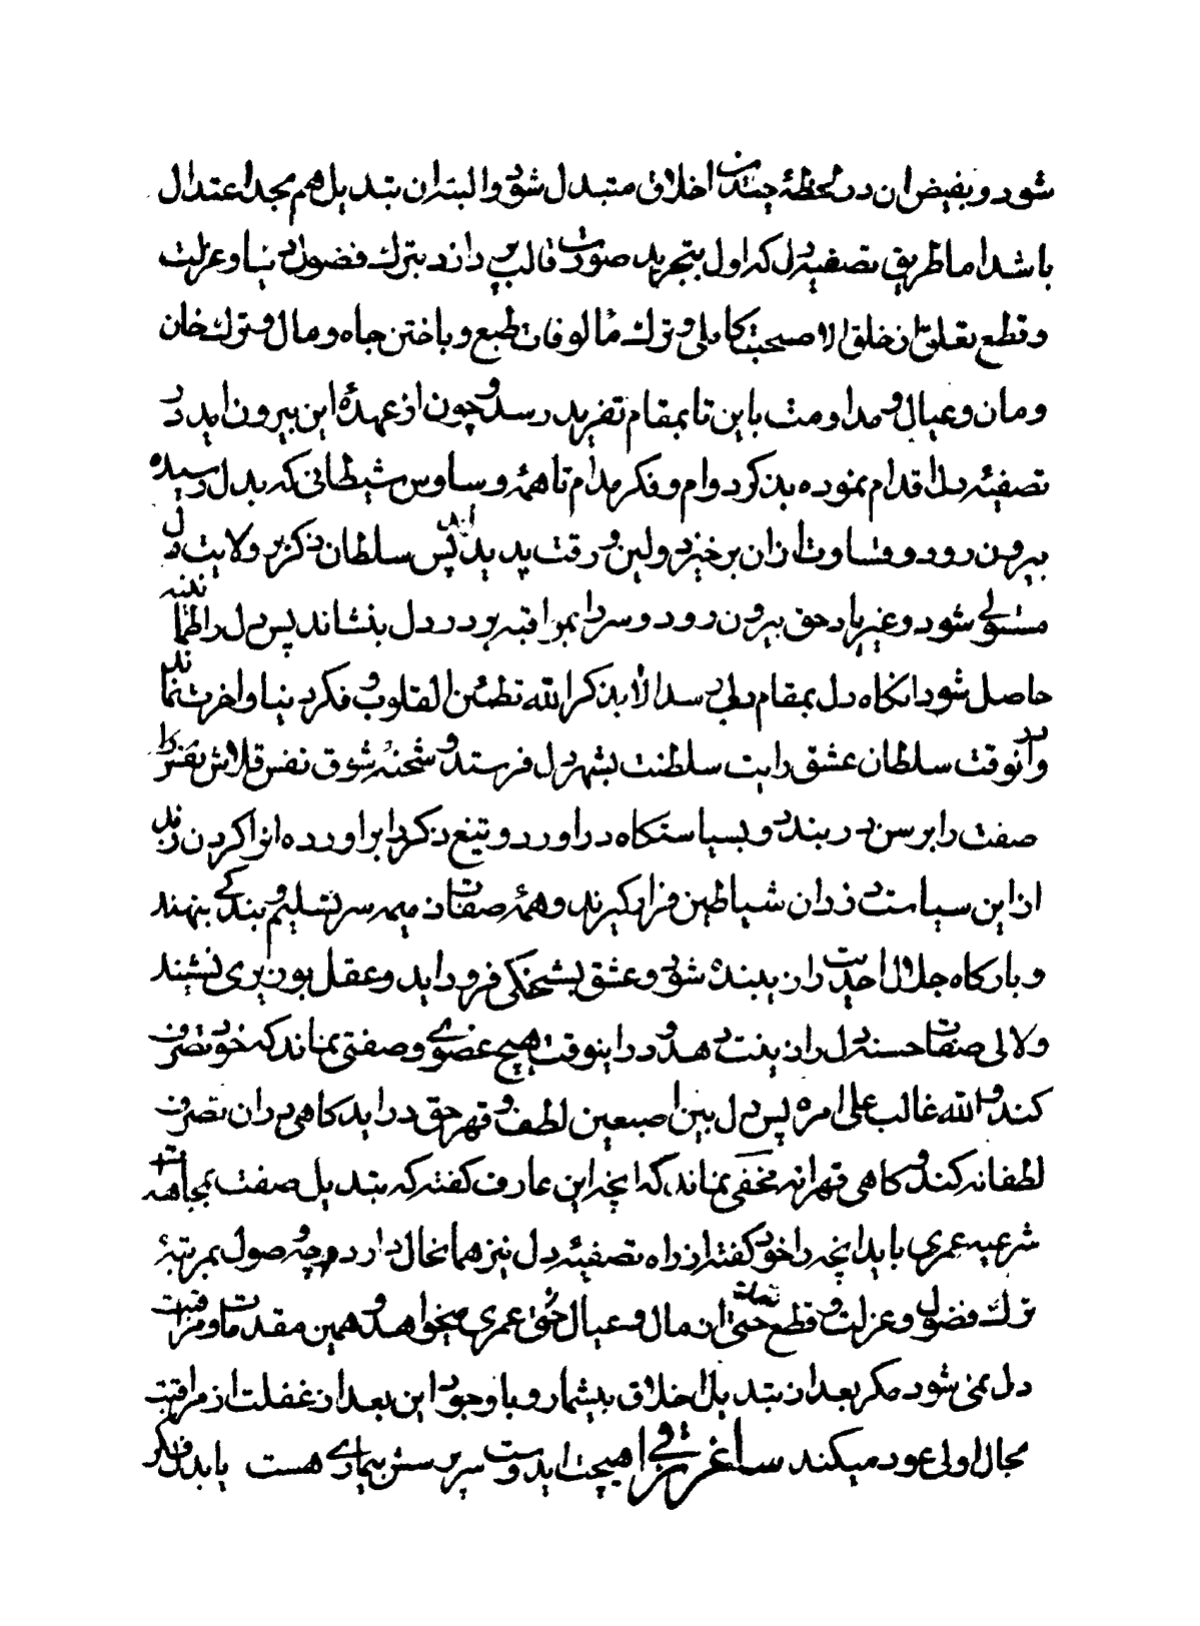 شود و بفیض ان در لحظهٔ چندین اخلاق متبدل شود و البته ان تبدیل هم بحد اعتدال
باشد اما طریق تصفیه دل که اول بتجرید صورت قالب پردازد بترک فضول دنیا و عزلت
و قطع تعلق از خلق الا صحبت کاملی و ترک مالوفات طبع و باختن جاه و مال و ترک خان
و مان و عیال و مداومت باین تا بمقام تفرید رسد و چون از عهدهٔ این بیرون اید در
تصفیهٔ دل اقدام نموده بذکر دوام و فکر مدام تا همهٔ وساوس شیطانی که بدل رسیده
بیرون رود و قساوت ازان برخیزد و لین و رقت پدید اید پس سلطان ذکر بر ولایت دل
مستولی شود و غیر یاد حق بیرون رود و سر را بمراقبه بر در دل بنشاند پس دل را طمانینه
حاصل شود انگاه دل بمقام دلی رسد الا بذکر الله تطمئن القلوب و فکر دنیا و اخرت نماند
و درانوقت سلطان عشق رایت سلطنت بشهر دل فرستد و شحنهٔ شوق نفس قلاش نفس را
صفت را برسن درد بندد و بسیاستگاه دراورد و بتیغ ذکر دا براورده انرا گردن زند
ازاین سیاست دزدان شیاطین فرار گیرند و همهٔ صفات ذمیمه سر تسلیم و بندگی بنهند
و بارگاه جلال احدیت را زیبنده شود و عشق بشحنگی فرود اید و عقل بوزیری نشیند
و لالی صفات حسنه دل را زینت دهد و دراینوقت هیچ عضوی و صفتی نماند که خود تصرف
کند و الله غالب علی امره پس دل بین اصبعین لطف و قهر حق دراید گاهی دران تصرف
لطفانه کند و گاهی قهرانه مخفی نماند که انچه این عارف گفته که تبدیل صفت بمجاهدت
شرعیه عمری باید انچه را خود گفته از راه تصفیهٔ دل نیز همانحال دارد و چه وصول بمرتبهٔ
ترک فضول و عزلت و قطع تعلقات حتی از مال و عیال خود عمری میخواهد و همین مقدمات و مراقبت
دل نمی شود مگر بعد از تبدیل اخلاق بیشمار و با وجود این بعد از غفلت از مراقبت
بحال اولی عود میکند ساغر هیچت ایدوست سر پرسش بیماری هست یا بدل فکر